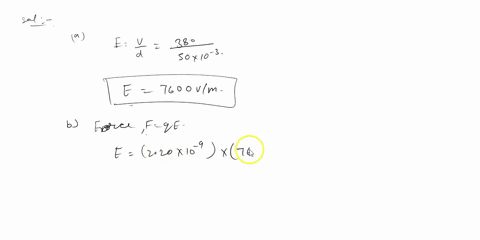 Sol:-
(a)
E = V/d = 380 / 50×10⁻³.
E = 7600 V/m.
b) Force, F = qE.
E = (20.20 × 10⁻⁹) × (76